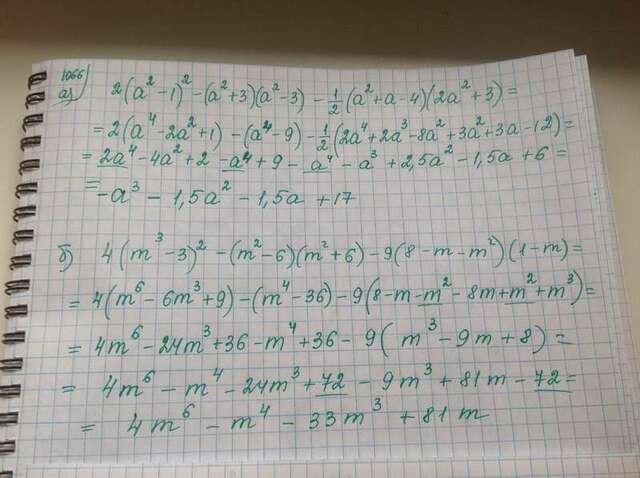 1066)
а) 2(a²-1)² - (a²+3)(a²-3) - 1/2(a²+a-4)(2a²+3)=
= 2(a⁴-2a²+1) - (a⁴-9) - 1/2(2a⁴+2a³-8a²+3a²+3a-12)=
= 2a⁴-4a²+2 -a⁴+9 - a⁴ - a³ + 2,5a² -1,5a +6 =
= -a³ - 1,5a² - 1,5a + 17
б) 4(m³-3)² - (m²-6)(m²+6) - 9(8-m-m²)(1-m)=
= 4(m⁶-6m³+9) - (m⁴-36) - 9(8-m-m²-8m+m²+m³)=
= 4m⁶-24m³+36-m⁴+36- 9(m³-9m+8) =
= 4m⁶ - m⁴ - 24m³+72 - 9m³ + 81m - 72 =
= 4m⁶ - m⁴ - 33m³ + 81m